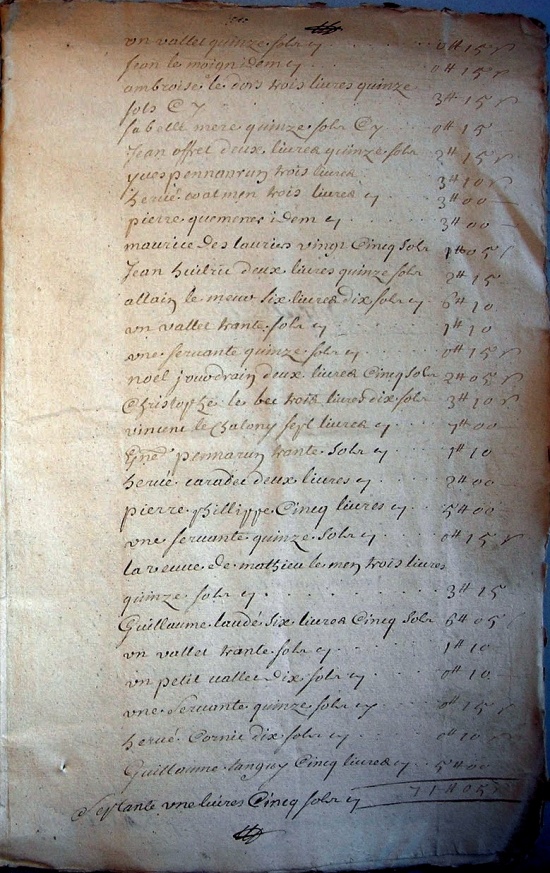 un vallet quinze sols cy . . . . 0tt 15 s
Jean le moign idem cy . . . . 0tt 15 s
ambroise le dors trois livres quinze
sols Cy . . . . 3tt 15 s
sa belle mere quinze sols Cy 0tt 15
Jean offret deux livres quinze sols 2tt 15 s
yves pennanrun trois livres 3tt 10 s
hervé coatmen trois livres cy . 3tt 00
pierre quemener idem cy . . . 3tt 00
maurice des lauriers vingt Cinq sols 1tt 05 s
Jean huitric deux livres quinze sols 2tt 15
allain le meur six livres dix sols cy 6tt 10
un vallet trante sols cy . . . . 1tt 10
une servante quinze sols cy . . . 0tt 15 s
noël jouvdrain deux livres Cinq sols 2tt 05 s
Christophe le bec trois livres dix sols 3tt 10 s
vincent le Chalony sept livres cy . 7tt 00
penmarun trante sols cy . . 1tt 10
hervé caradec deux livres cy . . 2tt 00
pierre phillippe Cinq livres cy . . 5tt 00
une servante quinze sols cy . . 0tt 15 s
la veuve de mathieu le men trois livres
quinze sols cy . . . . . . 3tt 15
Guillaume laudé six livres Cinq sols 6tt 05 s
un vallet trante sols cy . . . . 1tt 10
un petit vallet dix sols cy . . . 0tt 10
une servante quinze sols cy . . . 0tt 15 s
hervé Cornic dix sols cy . . . . 0tt 10
Guillaume tanguy Cinq livres cy . 5tt 00
Septante une livres Cinq sols cy 71tt 05 s